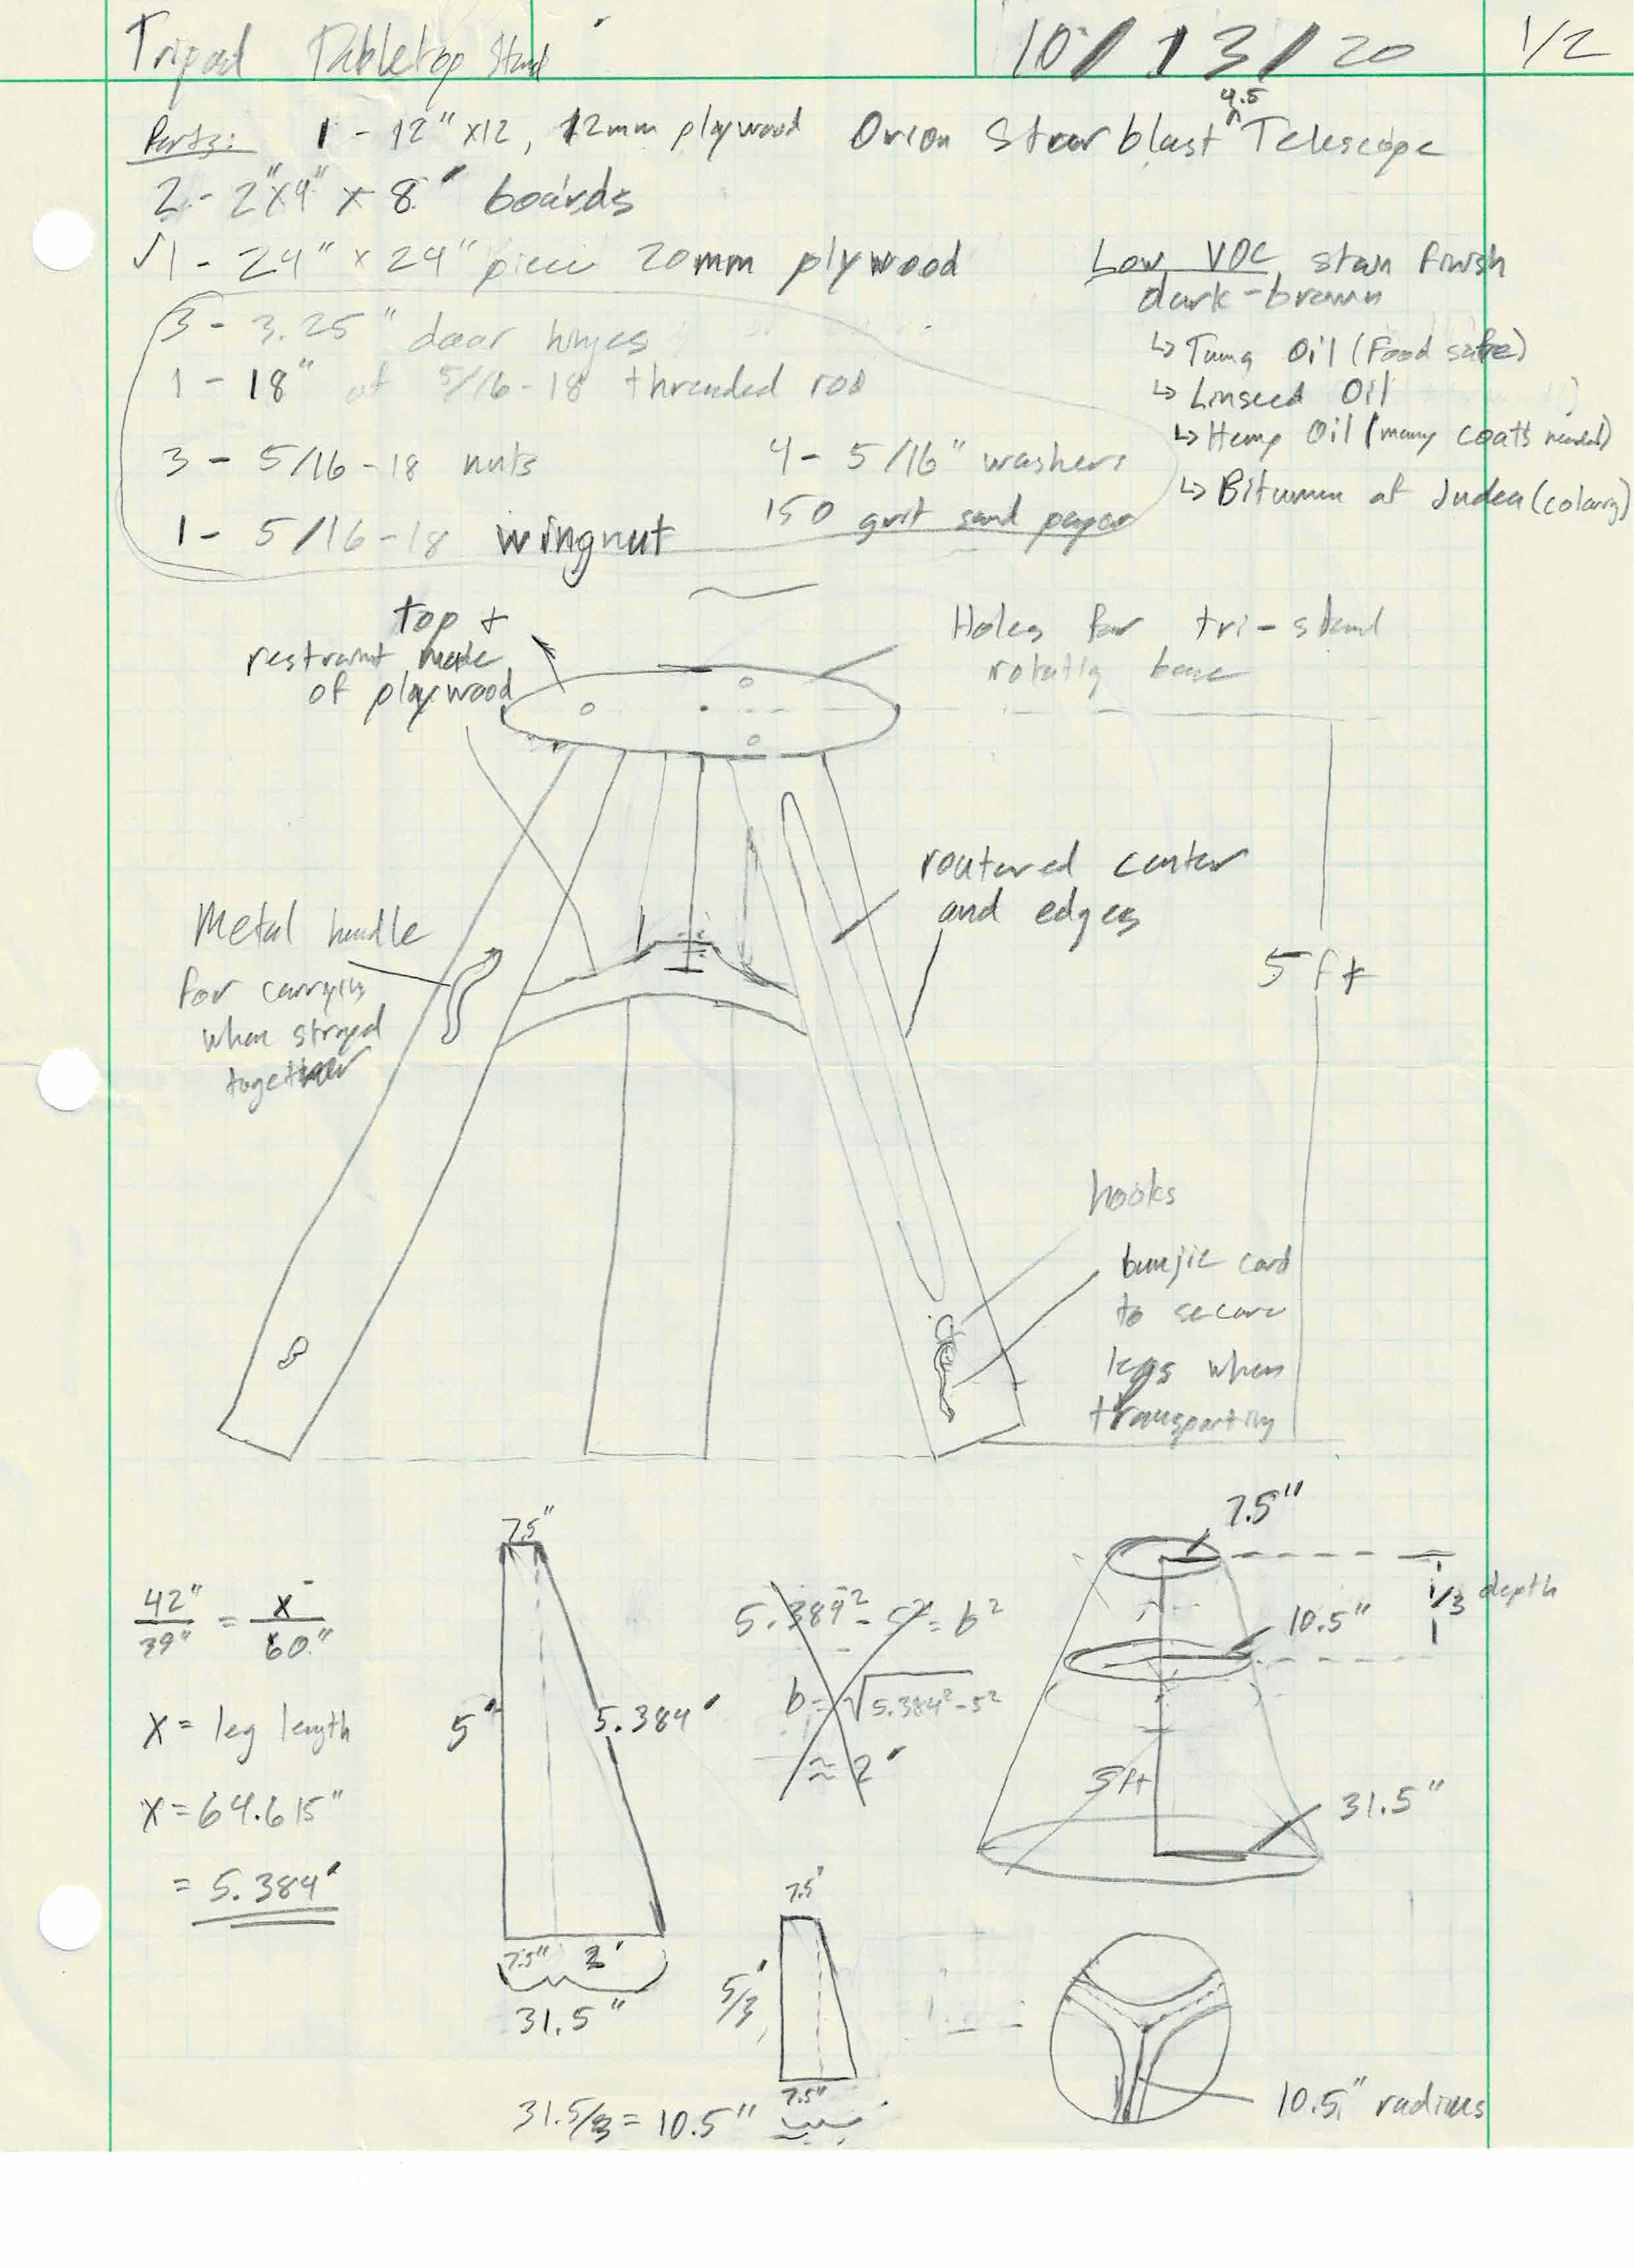 Tripod Tabletop Stand
10/13/20
1/2
Parts: 1 - 12" x12, 12mm playwood
Orion Starblast 4.5 Telescope
2 - 2"x4" x 8' boards
√1 - 24" x 24" piece 20mm plywood
3 - 3.25" door hinges
1 - 18" of 5/16-18 threaded rod
3 - 5/16-18 nuts
4 - 5/16" washers
1 - 5/16-18 wingnut
150 grit sand paper
Low VOC stain finish
dark-brown
↳ Tung Oil (Food safe)
↳ Linseed Oil
↳ Hemp Oil (many coats needed)
↳ Bitumen of Judea (coloring)
top +
restraint made
of playwood
Holes for tri-stand
rotatig base
routered center
and edges
Metal handle
for carrying
when straped
together
5 ft
hooks
bunjie cord
to secure
legs when
transporting
42"/39" = x/60"
x = leg length
x = 64.615"
= 5.384'
7.5"
5'
5.384'
7.5" 2'
31.5"
5.384² - 5² = b²
b = √5.384² - 5²
≈ 2'
7.5"
1/3 depth
10.5"
5ft
31.5"
7.5"
5/3'
7.5"
31.5/3 = 10.5"
10.5" radius